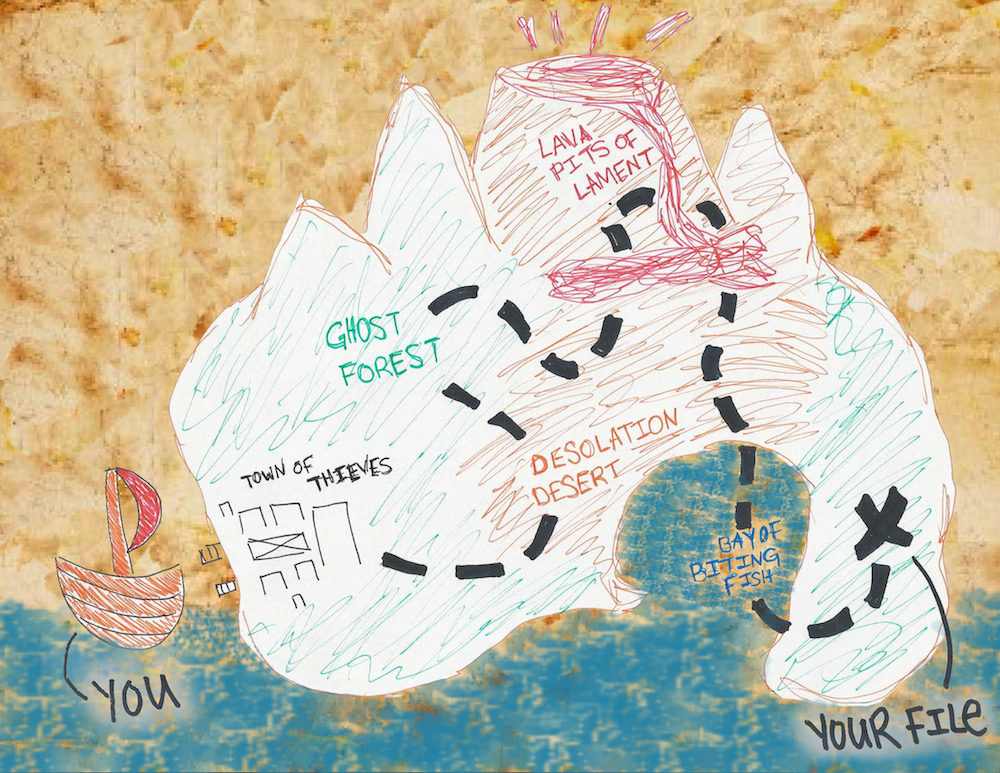 LAVA
PITS OF
LAMENT
GHOST
FOREST
DESOLATION
DESERT
TOWN OF
THIEVES
BAY OF
BITING
FISH
YOU
YOUR FILE